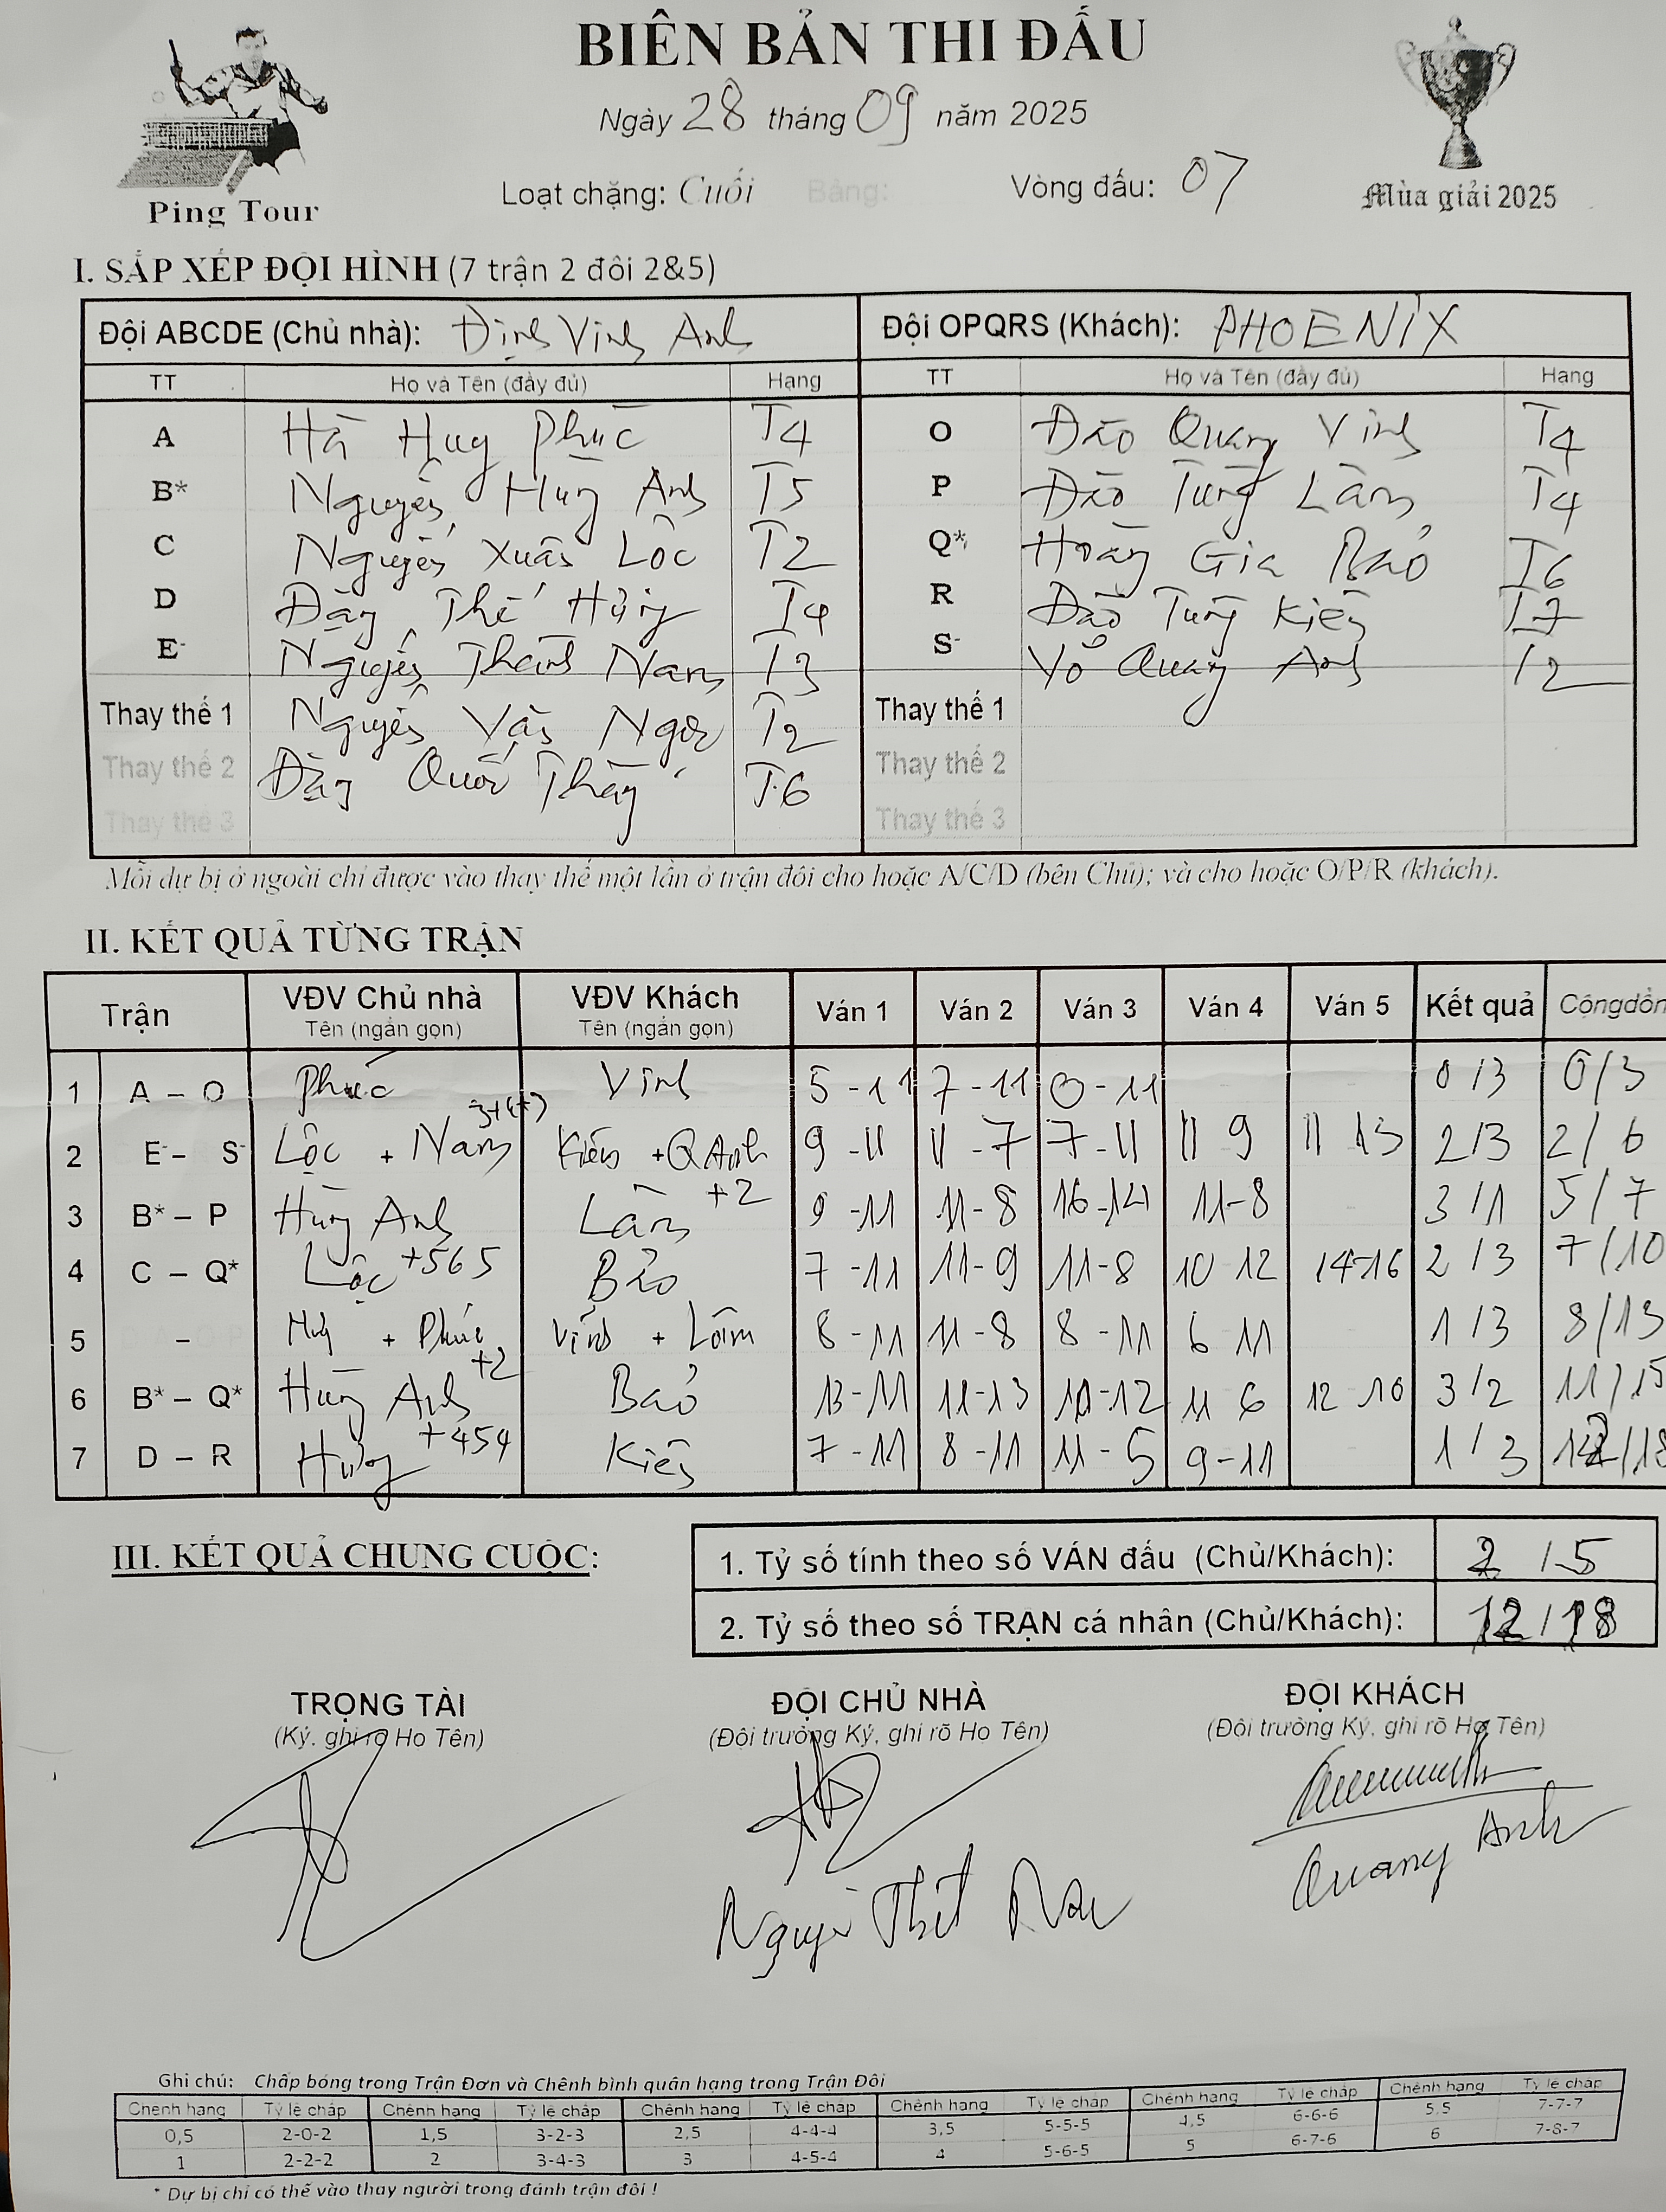 BIÊN BẢN THI ĐẤU
Ngày 28 tháng 09 năm 2025
Loạt chặng: Cuối Bảng: Vòng đấu: 07
Ping Tour
Mùa giải 2025
I. SẮP XẾP ĐỘI HÌNH (7 trận 2 đôi 2&5)
Đội ABCDE (Chủ nhà): Định Vinh Anh Đội OPQRS (Khách): PHOENIX
TT Họ và Tên (đầy đủ) Hạng TT Họ và Tên (đầy đủ) Hạng
A Hà Huy Phúc T4 O Đào Quang Vinh T4
B* Nguyễn Hùng Anh T5 P Đào Tùng Lâm T4
C Nguyễn Xuân Lộc T2 Q* Hoàng Gia Bảo T6
D Đặng Thế Hưng T4 R Đào Tùng Kiên T7
E- Nguyễn Thành Nam T3 S- Võ Quang Anh T2
Thay thế 1 Nguyễn Văn Ngọc T2 Thay thế 1
Thay thế 2 Đặng Quốc Thắng T6 Thay thế 2
Thay thế 3 Thay thế 3
Mỗi dự bị ở ngoài chỉ được vào thay thế một lần ở trận đôi cho hoặc A/C/D (bên Chủ); và cho hoặc O/P/R (khách).
II. KẾT QUẢ TỪNG TRẬN
Trận VĐV Chủ nhà VĐV Khách Ván 1 Ván 2 Ván 3 Ván 4 Ván 5 Kết quả Cộng dồn
Tên (ngắn gọn) Tên (ngắn gọn)
1 A - O Phúc Vinh 5-11 7-11 0-11 0/3 0/3
2 E- - S- Lộc + Nam Kiên + Q Anh 9-11 11-7 7-11 11 9 11 13 2/3 2/6
3 B* - P Hùng Anh Lâm +2 9-11 11-8 16-14 11-8 3/1 5/7
4 C - Q* Lộc +565 Bảo 7-11 11-9 11-8 10 12 14-16 2/3 7/10
5 - + Phúc Vinh + Lâm 8-11 11-8 8-11 6 11 1/3 8/13
6 B* - Q* Hùng Anh +2 Bảo 13-11 11-13 10-12 11 6 12 10 3/2 11/15
7 D - R Hưng +454 Kiên 7-11 8-11 11-5 9-11 1/3 12/18
III. KẾT QUẢ CHUNG CUỘC:
1. Tỷ số tính theo số VÁN đấu (Chủ/Khách): 2/5
2. Tỷ số theo số TRẬN cá nhân (Chủ/Khách): 12/18
TRỌNG TÀI ĐỘI CHỦ NHÀ ĐỘI KHÁCH
(Ký, ghi rõ Họ Tên) (Đội trưởng Ký, ghi rõ Họ Tên) (Đội trưởng Ký, ghi rõ Họ Tên)
Quang Anh
Ghi chú: Chấp bóng trong Trận Đơn và Chênh bình quân hạng trong Trận Đôi
Chênh hạng Tỷ lệ chấp Chênh hạng Tỷ lệ chấp Chênh hạng Tỷ lệ chấp Chênh hạng Tỷ lệ chấp Chênh hạng Tỷ lệ chấp Chênh hạng Tỷ lệ chấp
0,5 2-0-2 1,5 3-2-3 2,5 4-4-4 3,5 5-5-5 4,5 6-6-6 5,5 7-7-7
1 2-2-2 2 3-4-3 3 4-5-4 4 5-6-5 5 6-7-6 6 7-8-7
* Dự bị chỉ có thể vào thay người trong đánh trận đôi !